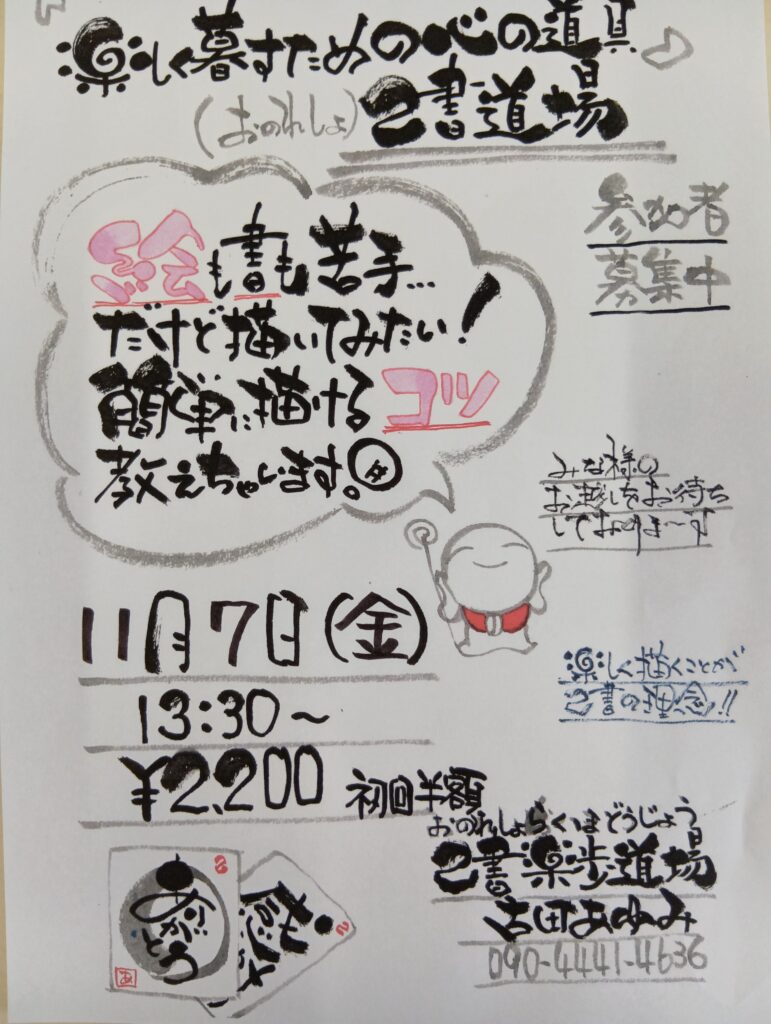 楽しく暮すための心の道具
(おのれしょ)己書道場
参加者
募集中
絵も書も苦手…
だけど描いてみたい！
簡単に描けるコツ
教えちゃいます。
みな様の
お越しをお待ち
しておりま〜す
11月7日(金)
13:30〜
¥2,200 初回半額
楽しく描くことが
己書の理念!!
おのれしょらくほどうじょう
己書楽歩道場
古町あゆみ
090-4441-4636
ありがとう
あ